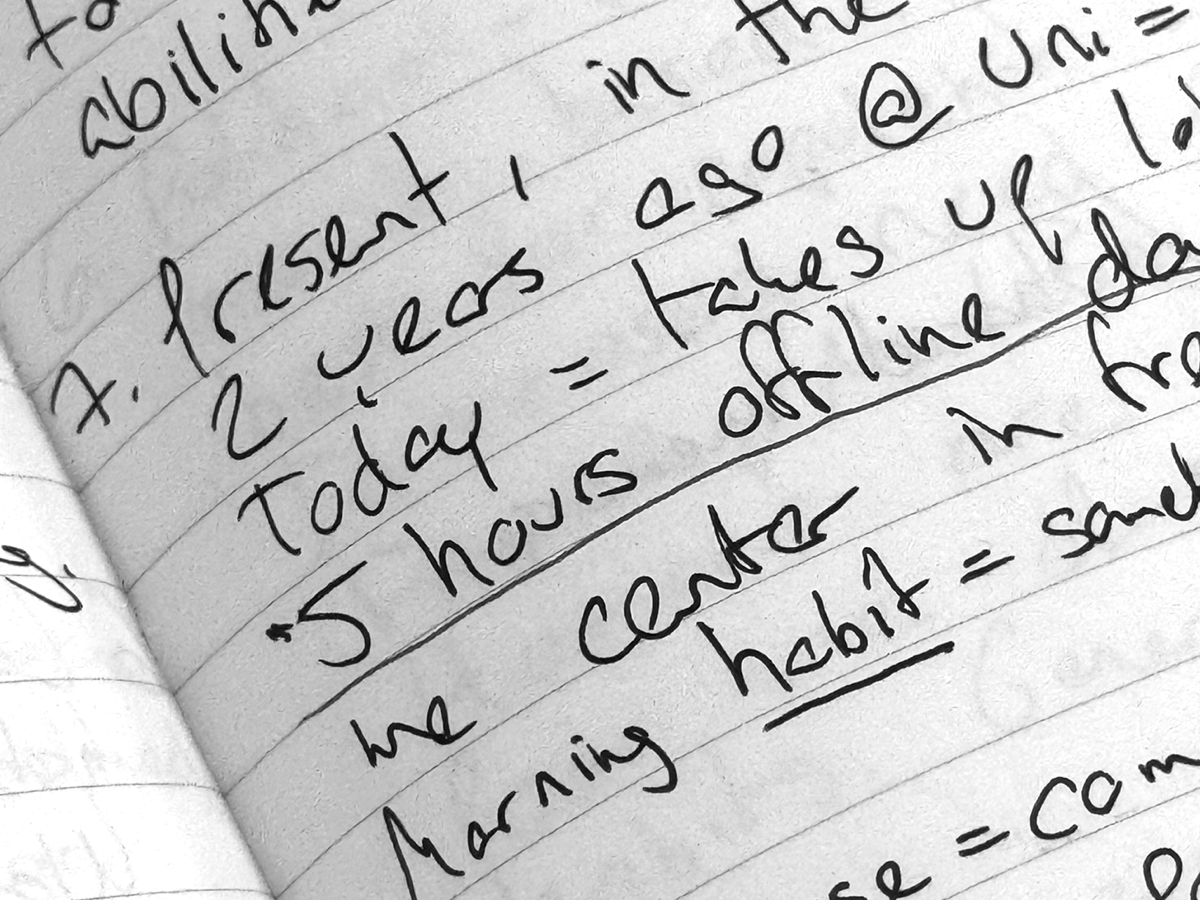 to
abiliti
7. Present, in the
2 years ago @ uni =
Today = takes up lot
5 hours offline da
me center in fre
Morning habit = sand
se = com
g.